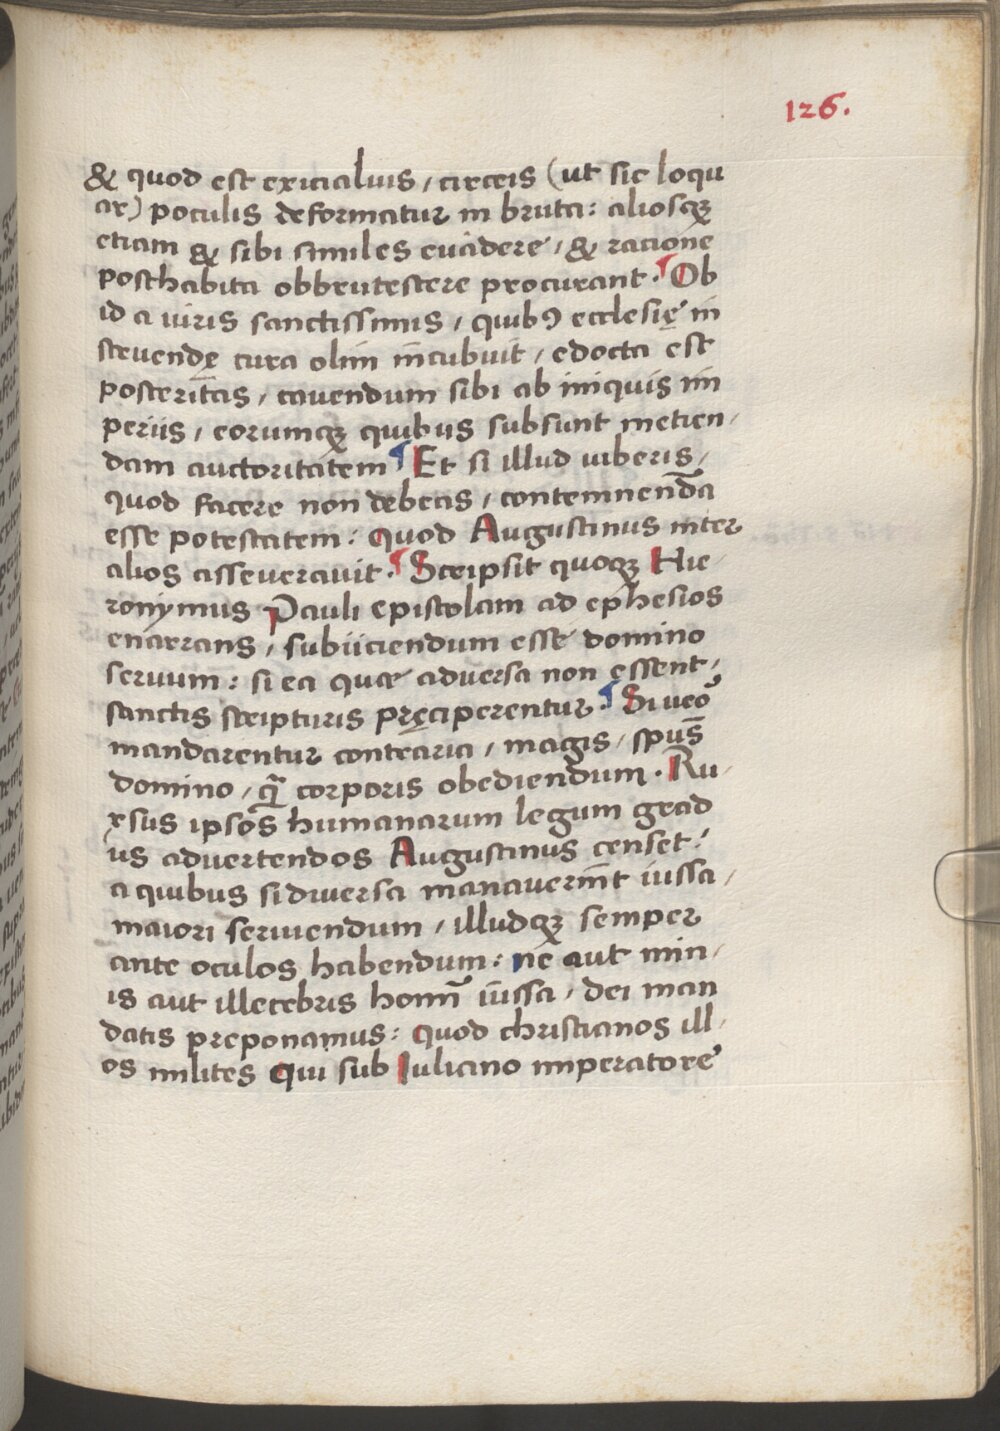 126.
& quod est exicialius, circeis (ut sic loqu
ar) poculis deformatur in bruta: aliosqꝫ
etiam & sibi similes evadere, & racione
posthabita obbrutescere procurant. ¶ Ob
id a viris sanctissimis, quibꝰ ecclesię in
struendę cura olim incubuit, edocta est
posteritas, cavendum sibi ab iniquis im
periis, eorumqꝫ quibus subsunt metien,
dam auctoritatem ¶ Et si illud iuberis,
quod facere non debeas, contemnendā
esse potestatem: Quod Augustinus inter
alios asseveravit. ¶ Scripsit quoqꝫ Hie,
ronymus Pauli epistolam ad ephesios
enarrans, subiiciendum esse domino
servum: si ea quae adversa non essent,
sanctis scripturis pręciperentur. ¶ Si veō
mandarentur contraria, magis, spūs
domino, qͣ corporis obediendum. Ru,
rsus ipsos humanarum legum grad
us advertendos Augustinus censet:
a quibus si diversa manaverint iussa,
maiori serviendum, illudqꝫ semper
ante oculos habendum: ne aut min,
is aut illecebris homī iussa, dei man
datis preponamus: Quod christianos ill,
os milites Qui sub Iuliano imperatore